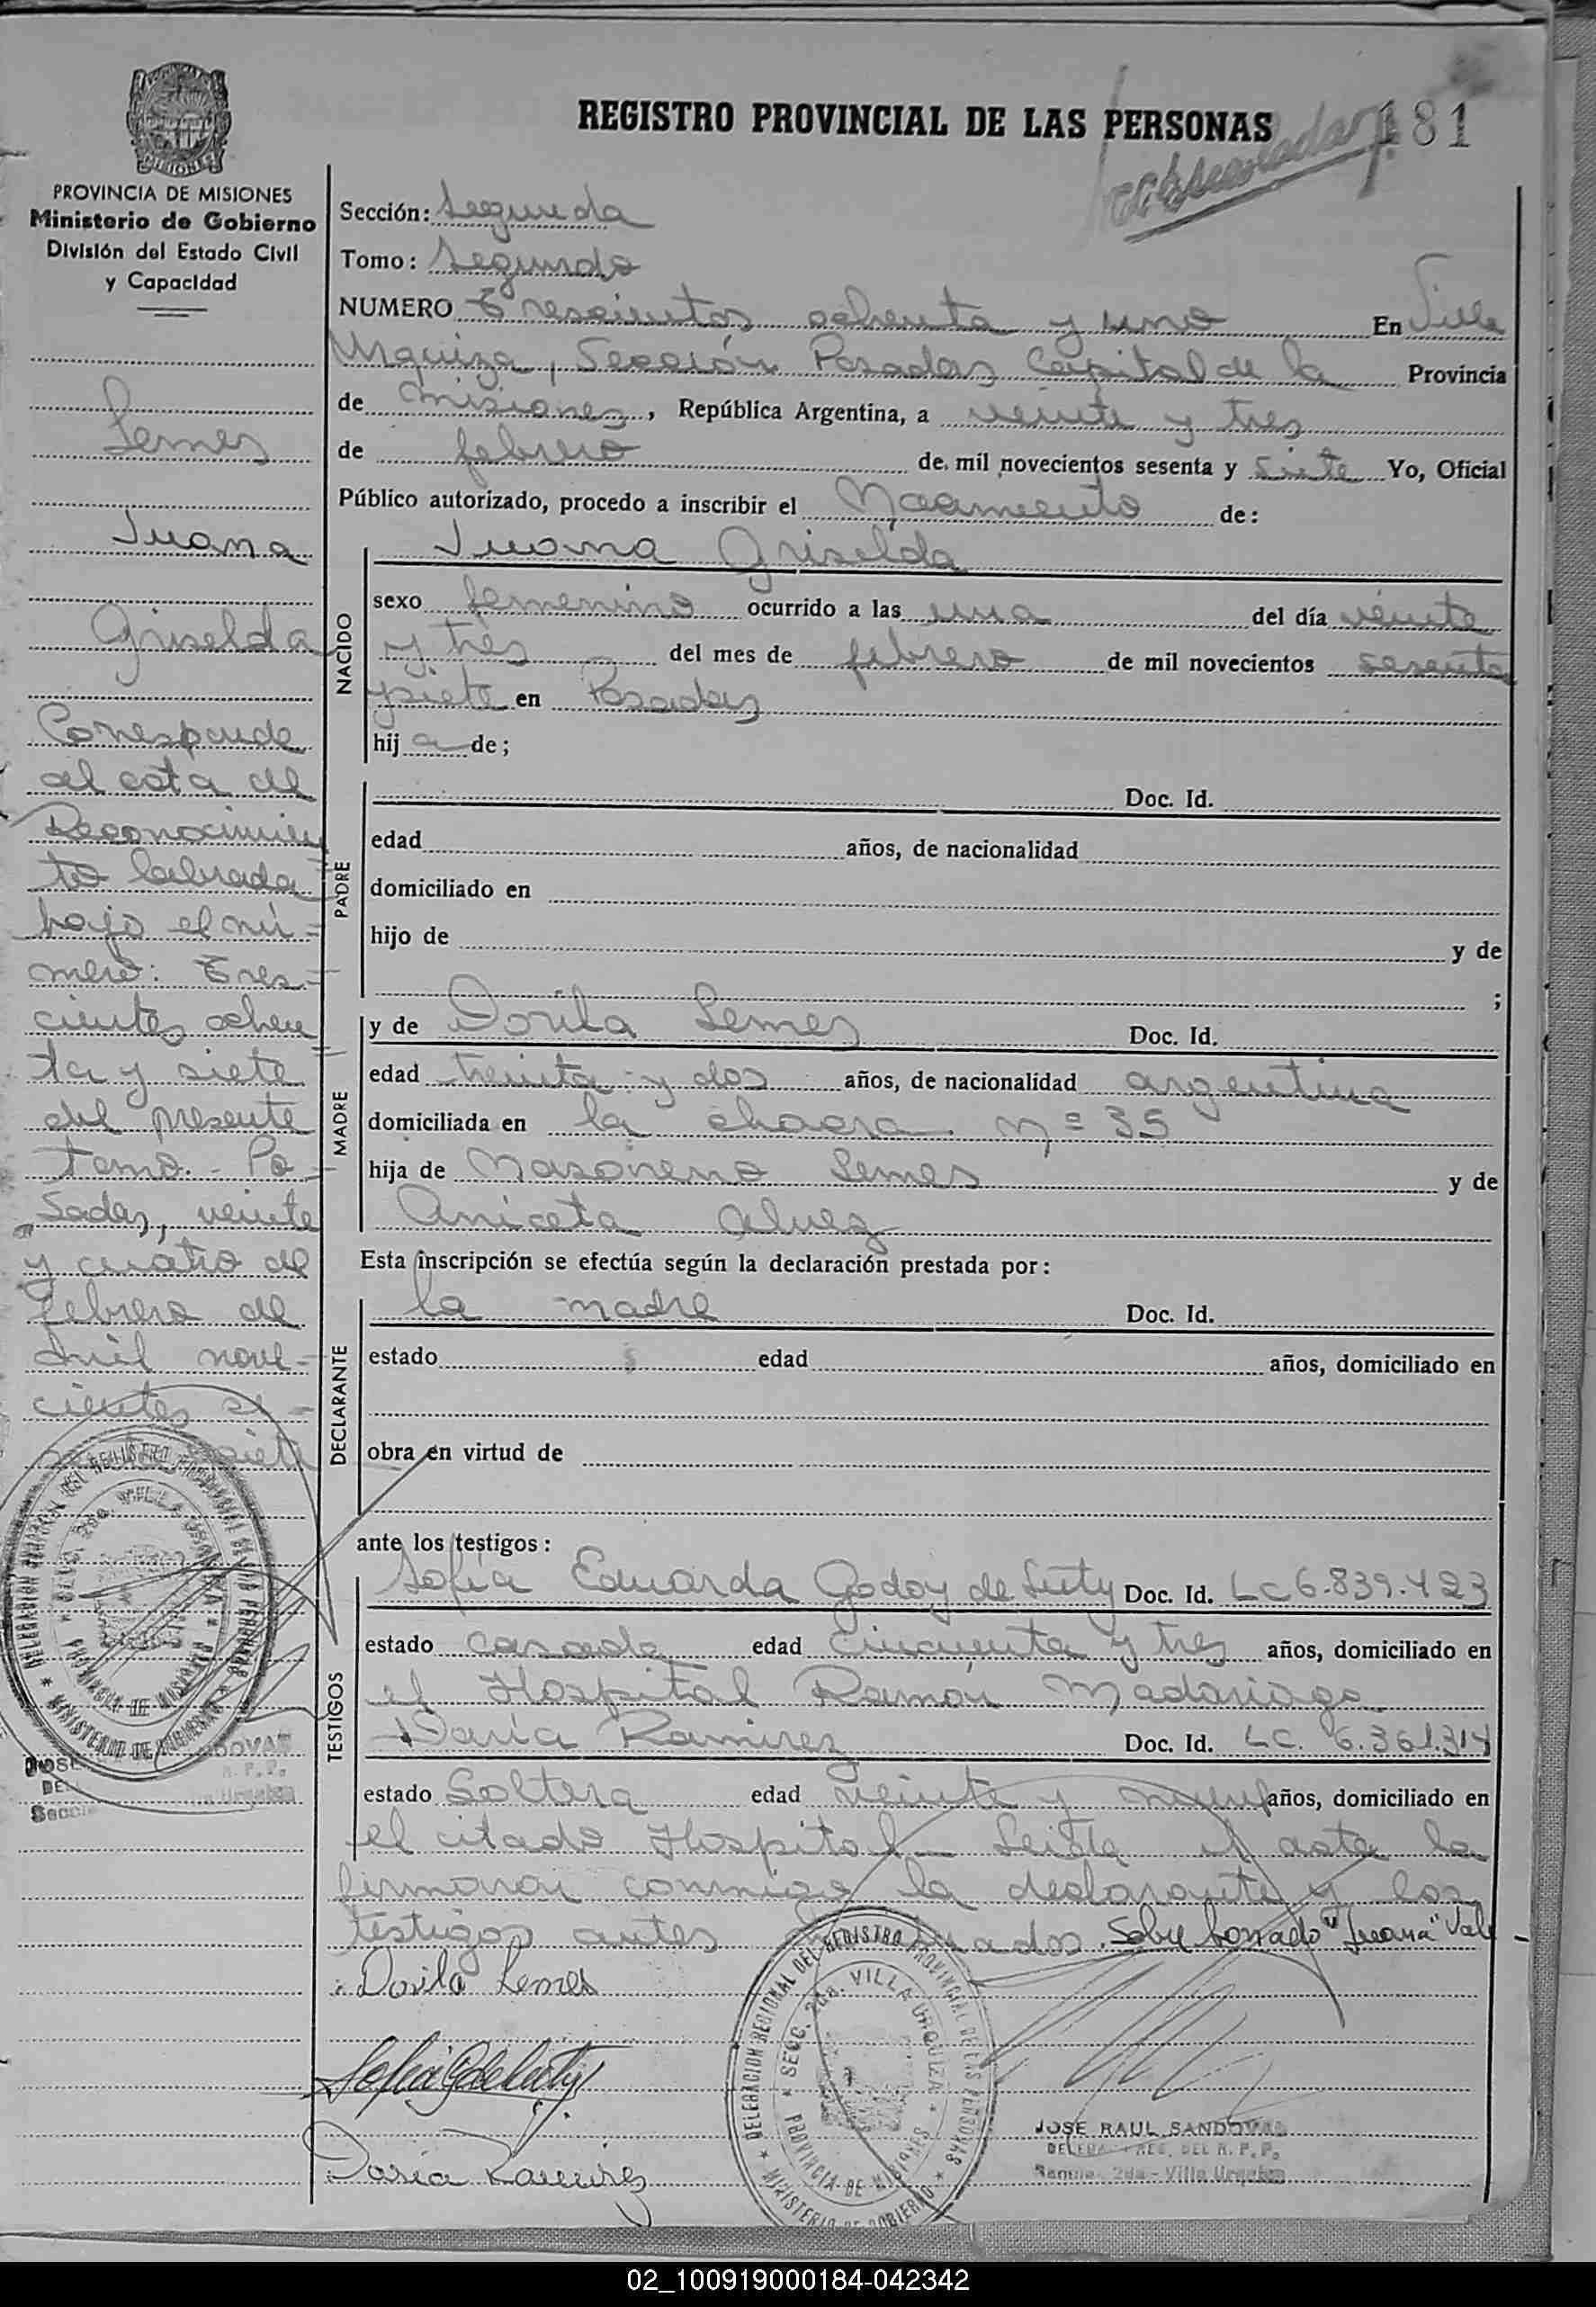 REGISTRO PROVINCIAL DE LAS PERSONAS
181
PROVINCIA DE MISIONES
Ministerio de Gobierno
División del Estado Civil
y Capacidad
Lemes
Juana
Griselda
Corresponde
al acta de
Reconocimien
to labrada
bajo el nú-
mero: Tres-
cientos ochen
ta y siete
del presente
tomo.- Po-
sadas, veinte
y cuatro de
febrero de
mil nove-
cientos se-
siete
Sección: Segunda
Tomo: Segundo
NUMERO Trescientos ochenta y uno En Villa
Urquiza, Sección Posadas Capital de la Provincia
de Misiones, República Argentina, a veinte y tres
de febrero de mil novecientos sesenta y siete Yo, Oficial
Público autorizado, procedo a inscribir el Nacimiento de:
NACIDO
Juana Griselda
sexo femenino ocurrido a las una del día veinte
y tres del mes de febrero de mil novecientos sesenta
y siete en Posadas
hij a de;
PADRE
Doc. Id.
edad años, de nacionalidad
domiciliado en
hijo de y de
;
MADRE
y de Dorila Lemes Doc. Id.
edad treinta y dos años, de nacionalidad argentina
domiciliada en la chacra nº 35
hija de Lemes y de
Aniceta Alvez
Esta inscripción se efectúa según la declaración prestada por:
DECLARANTE
la madre Doc. Id.
estado edad años, domiciliado en
obra en virtud de
ante los testigos:
TESTIGOS
Sofía Eduarda Godoy de Doc. Id. LC 6.839.423
estado casada edad cincuenta y tres años, domiciliado en
el Hospital Ramón Madariaga
Daría Ramirez Doc. Id. LC. 6.361.314
estado Soltera edad veinte y nueve años, domiciliado en
el citado Hospital - Leída el acta la
firmaron conmigo la declarante y los
testigos antes Sobre borrado "Juana" Vale-
Dorila Lemes
Daría Ramirez
DELEGACION REGIONAL DEL REGISTRO PROVINCIAL DE LAS PERSONAS
SECC. 2da. VILLA URQUIZA
PROVINCIA DE MISIONES
MINISTERIO DE GOBIERNO
JOSE RAUL SANDOVAL
REG. DEL R. P. P.
2da - Villa Urquiza
02_100919000184-042342